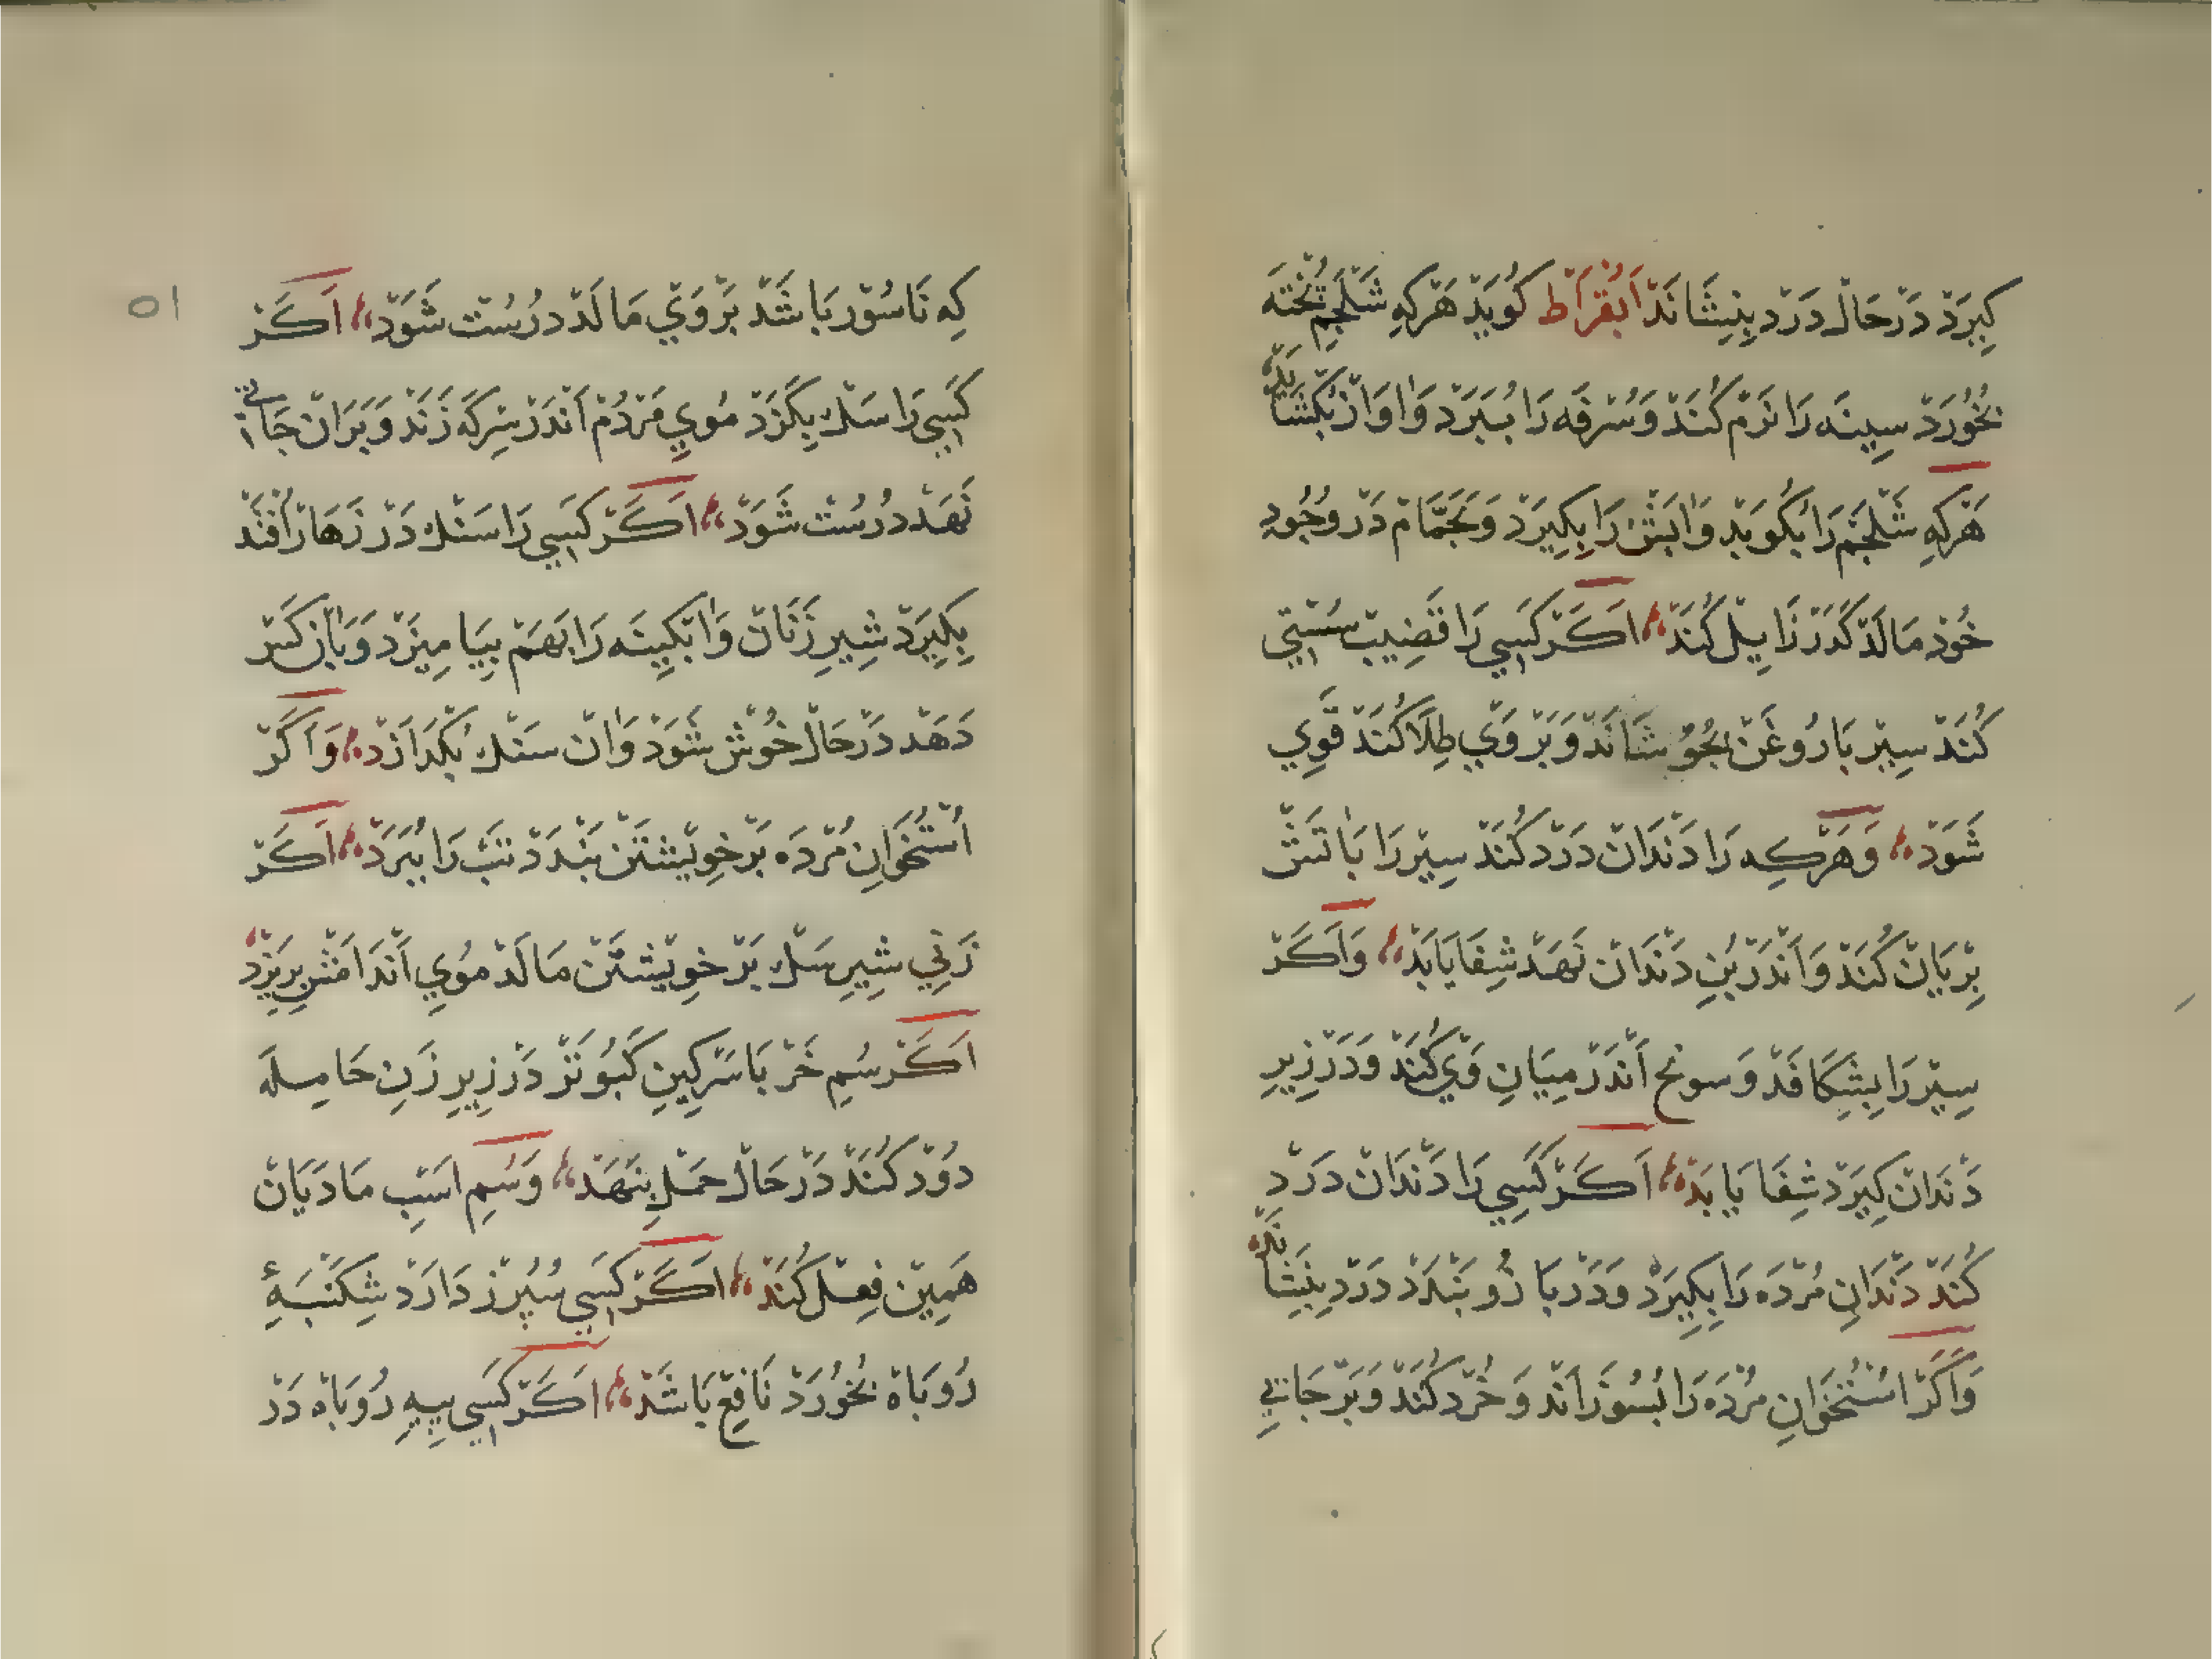 كِيرَدْ دَرْحَالْ دَرْد بِنِشَانَدْ اَبُقْرَاطْ كُويَدْ هَرْكِهِ شَلْجَمِ پُخْتَه
بُخُورَدْ سِينَه رَا نَرْم كُنَدْ وَسُرْفَه رَا بُبَرَدْ وَاوَازْ بُكْشَايَدْ
هَرْكِهِ شَلْجَمْ رَا بُكُويَدْ وَابَشْ رَا بِكِيرَدْ وَبَحَمَّامْ دَرْ وُجُودِ
خُودْ مَالَدْ كَدَرْ زَايِلْ كُنَدْ اَكَرْ كَسِي رَا قَضِيبْ سُسْتِي
كُنَدْ سِيرْ بَا رُوغَنْ بُجُوشَانَدْ وَبَرْ وَيْ طِلَا كُنَدْ قَوِي
شَوَدْ وَهَرْكِه رَا دَنْدَانْ دَرْد كُنَدْ سِيرْ رَا بَاتَشْ
بِرْيَانْ كُنَدْ وَاَنْدَرْ بُنِ دَنْدَانْ نَهَدْ شِفَا يَابَدْ وَاَكَرْ
سِيرْ رَا بِشِكَافَدْ وَسونح اَنْدَرْ مِيَانِ وَيْ كُنَدْ وَدَرْ زِيرِ
دَنْدَانْ كِيَرَدْ شِفَا يَابَدْ اَكَرْ كَسِي رَا دَنْدَانْ دَرْد
كُنَدْ دَنْدَانِ مُرْدَه رَا بِكِيرَدْ وَدَرْ بَازُو بَنْدَدْ دَرْد بِنِشَانَدْ
وَاَكَرْ اسْتُخَوَانِ مُرْدَه رَا بُسُوزَانَدْ وَخُرْد كُنَدْ وَبَرْ جَائِي
٥١
كِه نَاسُورْ بَاشَدْ بَرْ وَيْ مَالَدْ دُرُسْت شَوَدْ اَكَرْ
كَسِي رَا سَكْ بِكَزَدْ مُويِ مَرْدُمْ اَنْدَرْ سِرْكَه زَنَدْ وَبَرَانْ جَائِي
نَهَدْ دُرُسْت شَوَدْ اَكَرْ كَسِي رَا سَنْك دَرْ زَهَارْ اُفْتَدْ
بِكِيرَدْ شِيرِ زَنَانْ وَابْكِينَه رَا بَهَمْ بِيَامِيزَدْ وَبَانْ كَسْ
دَهَدْ دَرْحَالْ خُوشْ شَوَدْ وَانْ سَنْك بُكْدَازَدْ وَاَكَرْ
اُسْتُخَوَانِ مُرْدَه بَرْ خِويْشتَنْ بَنْدَدْ تَبْ رَا بُبَرَدْ اَكَرْ
زَنِي شِيرِ سَكْ بَرْ خِويْشتَنْ مَالَدْ مُويِ اَنْدَامَشْ بِرِيزَدْ
اَكَرْ سُمِ خَرْ بَا سَرْكِينِ كَبُوتَرْ دَرْ زِيرِ زَنِ حَامِلَه
دُودْ كُنَدْ دَرْحَالْ حَمْلِ بِنَهَدْ وَسُمِ اسَبِ مَادَيَانْ
هَمِينْ فِعِلْ كُنَدْ اَكَرْ كَسِي سُپُرْزْ دَارَدْ شِكَنْبَهِٔ
رُوبَاهْ بُخُورَدْ نَافِعْ بَاشَدْ اَكَرْ كَسِي پِيهِ رُوبَاهْ دَرْ